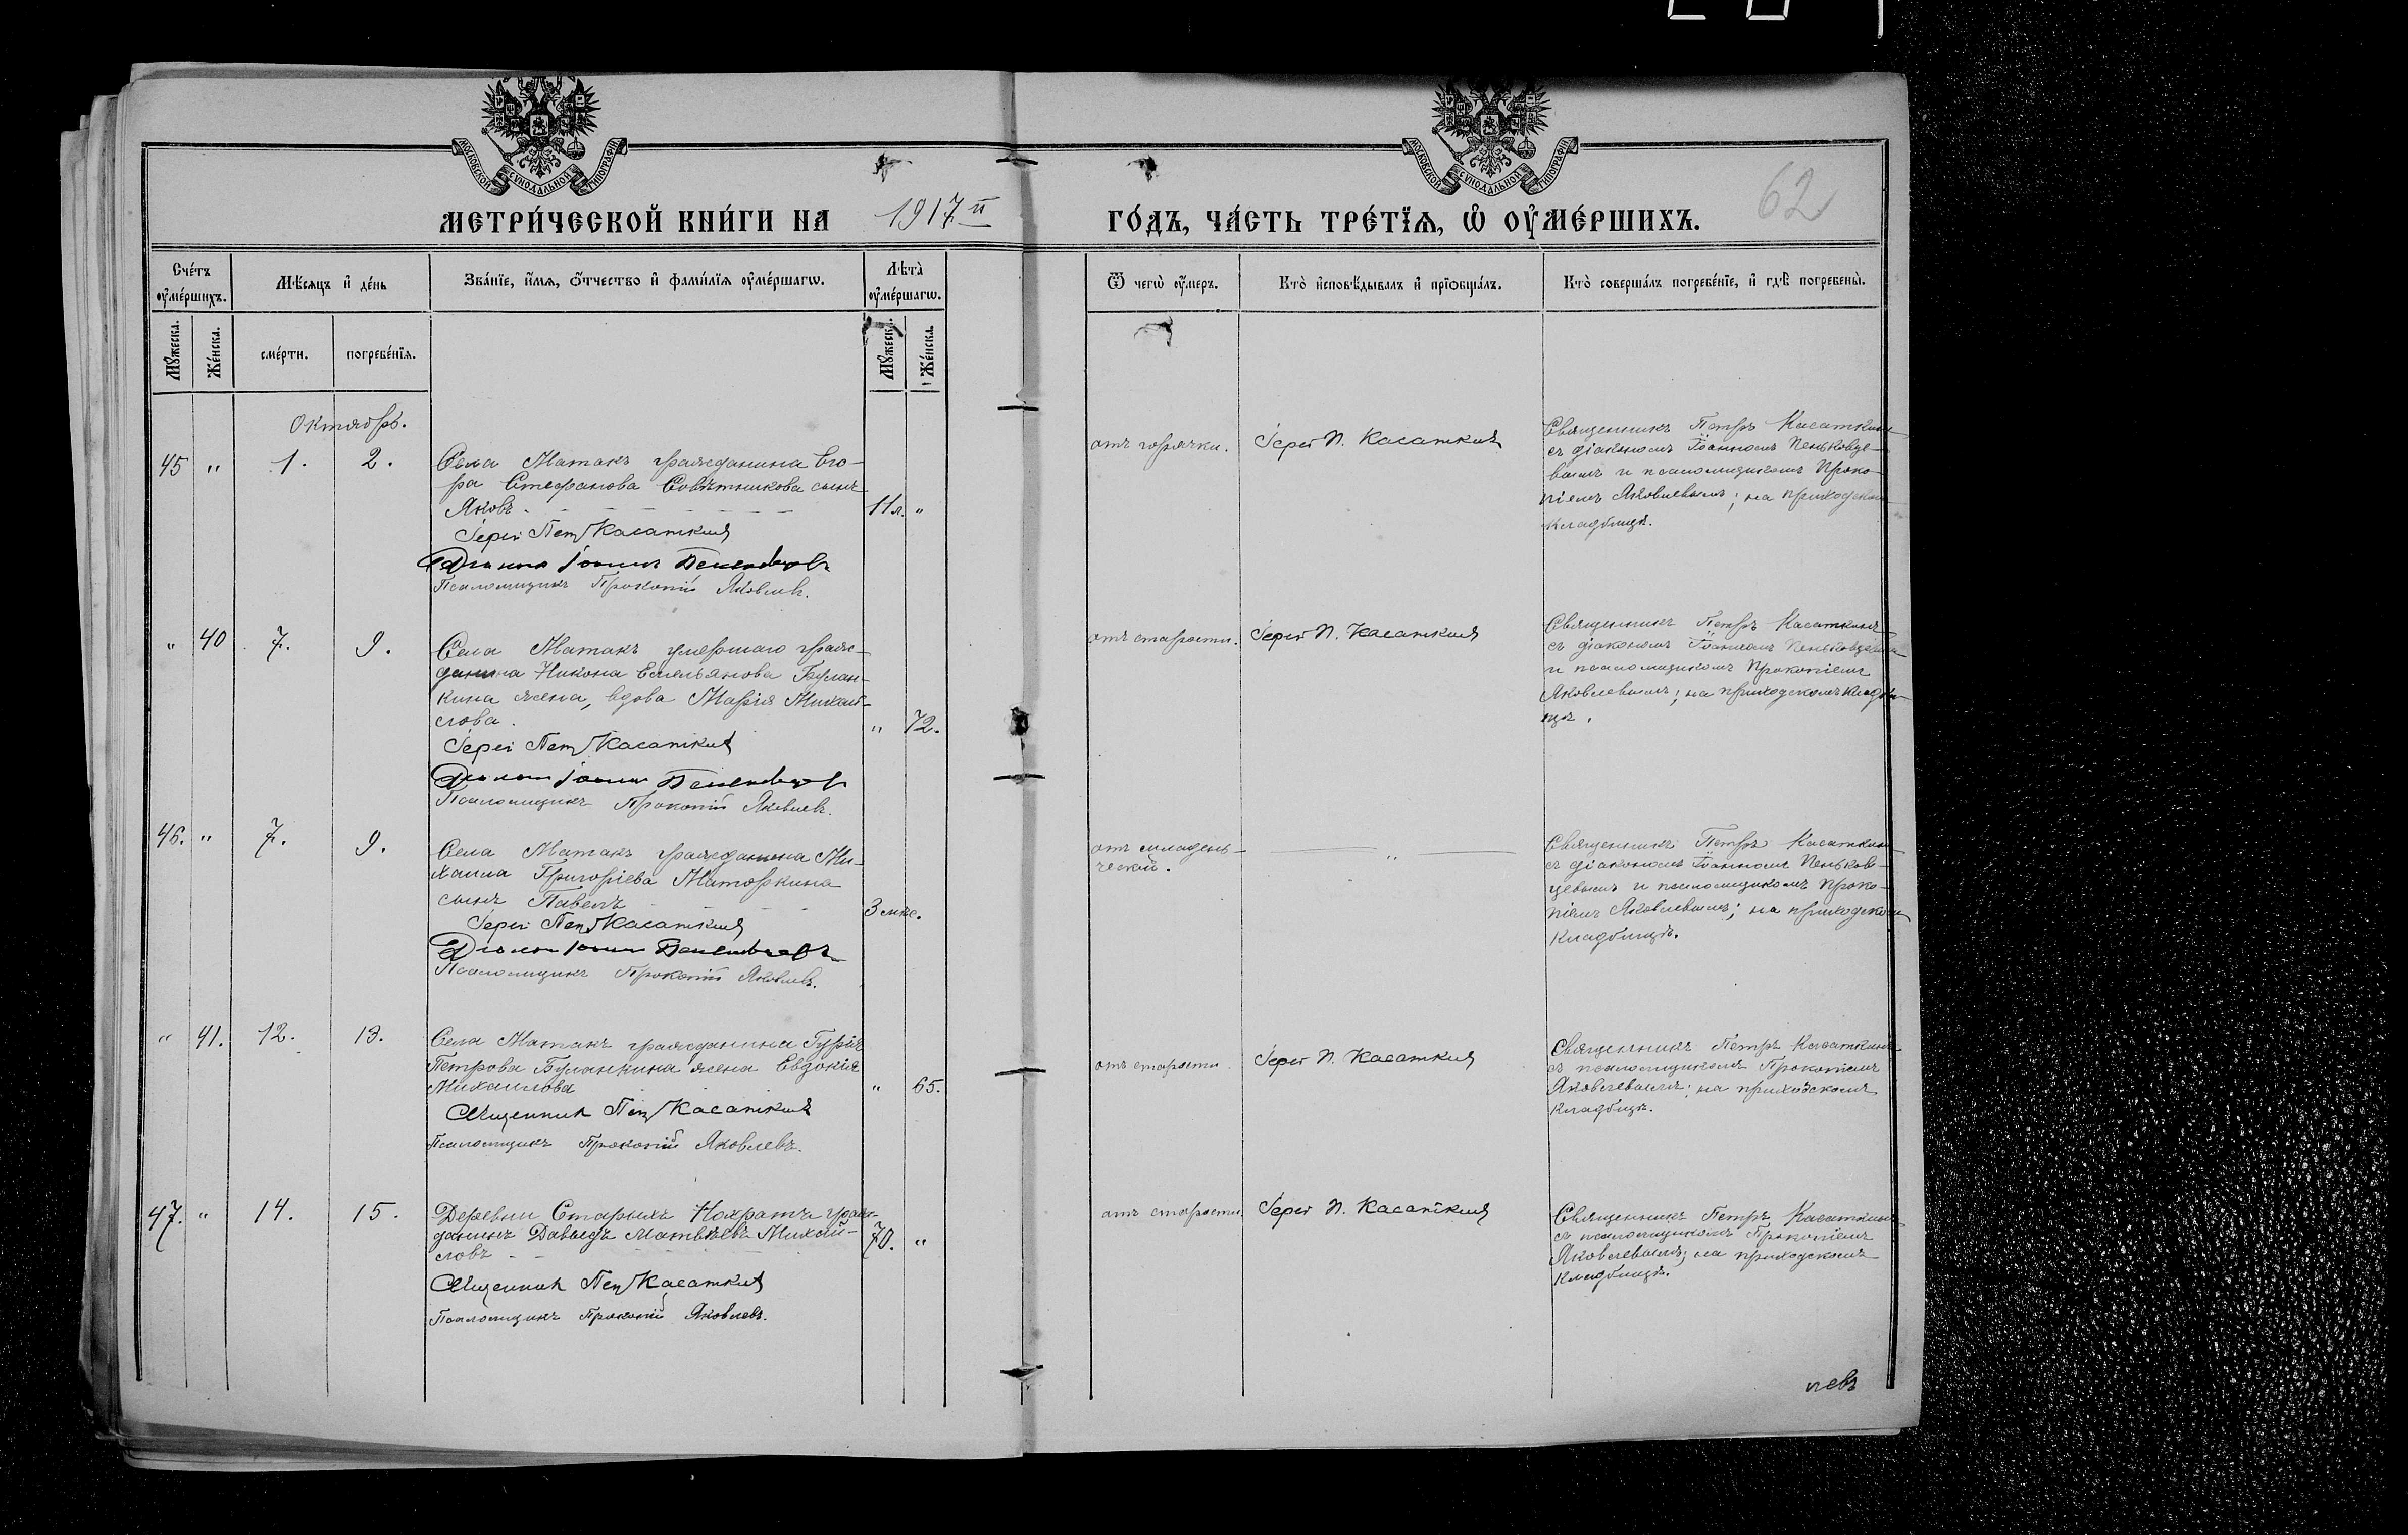 МОСКОВСКОЙ СѴНОДАЛЬНОЙ ТИПОГРАФІИ
МОСКОВСКОЙ СѴНОДАЛЬНОЙ ТИПОГРАФІИ
МЕТРИ́ЧЕСКОЙ КНИ́ГИ НА 1917 й ГО́ДЪ, ЧА́СТЬ ТРЕ́ТІѦ, Ѽ ОУ҆МЕ́РШИХЪ.
62
Сче́тъ оу҆ме́ршихъ.
Мѣ́сѧцъ и҆ де́нь
Зва́нїе, и҆́мѧ, ѻ҆́тчество и҆ фами́лїѧ оу҆ме́ршагѡ.
Лѣ́та̀ оу҆ме́ршагѡ.
Ѿ чегѡ̀ оу҆́меръ.
Кто̀ и҆сповѣ́дывалъ и҆ прїѡбща́лъ.
Кто̀ соверша́лъ погребе́нїе, и҆ гдѣ̀ погребены̀.
Мꙋ́жеска.
Же́нска.
сме́рти.
погребе́нїѧ.
Мꙋ́жеска.
Же́нска.
Октябрь.
45 " 1. 2.
Села Матакъ гражданина Его-
ра Стефанова Совѣтникова сынъ
Яковъ 11 л. "
Іерей Петр Касаткинъ
Діаконъ Іоаннъ Пеньковцевъ
Псаломщикъ Прокопій Яковлевъ.
отъ горячки.
Іерей П. Касаткинъ
Священникъ Петръ Касаткинъ
съ діакономъ Іоанномъ Пеньковце-
вымъ и псаломщикомъ Проко-
піемъ Яковлевымъ; на приходском
кладбищѣ.
" 40 7. 9.
Села Матакъ умершаго граж-
данина Никона Емельянова Булан-
кина жена, вдова Марія Михай-
лова. " 72.
Іерей Петр Касаткинъ
Діаконъ Іоаннъ Пеньковцевъ
Псаломщикъ Прокопій Яковлевъ.
отъ старости.
Іерей П. Касаткинъ
Священникъ Петръ Касаткинъ
съ діакономъ Іоанномъ Пеньковцевым
и псаломщикомъ Прокопіемъ
Яковлевымъ; на приходскомъ кладби-
щѣ.
46. " 7. 9.
Села Матакъ гражданина Ми-
хаила Григорієва Маторкина
сынъ Павелъ 3 мѣс.
Іерей Петр Касаткинъ
Діаконъ Іоаннъ Пеньковцевъ
Псаломщикъ Прокопій Яковлевъ.
отъ младень-
ческой.
"
Священникъ Петръ Касаткин
съ діакономъ Іоанномъ Пеньков-
цевымъ и псаломщикомъ Проко-
піемъ Яковлевымъ; на приходском
кладбищѣ.
" 41. 12. 13.
Села Матакъ гражданина Гурія
Петрова Буланкина жена Евдокія
Михаилова " 65.
Священникъ Петр Касаткинъ
Псаломщикъ Прокопій Яковлевъ.
отъ старости.
Іерей П. Касаткинъ
Священникъ Петръ Касаткинъ
съ псаломщикомъ Прокопіемъ
Яковлевымъ; на приходскомъ
кладбищѣ.
47. " 14. 15.
Деревни Старыхъ Нохратъ граж-
данинъ Давыдъ Матвѣевъ Михай-
ловъ 70. "
Священникъ Петр Касаткинъ
Псаломщикъ Прокопій Яковлевъ.
отъ старости.
Іерей П. Касаткинъ
Священникъ Петръ Касаткинъ
съ псаломщикомъ Прокопіемъ
Яковлевымъ; на приходскомъ
кладбищѣ.
левъ